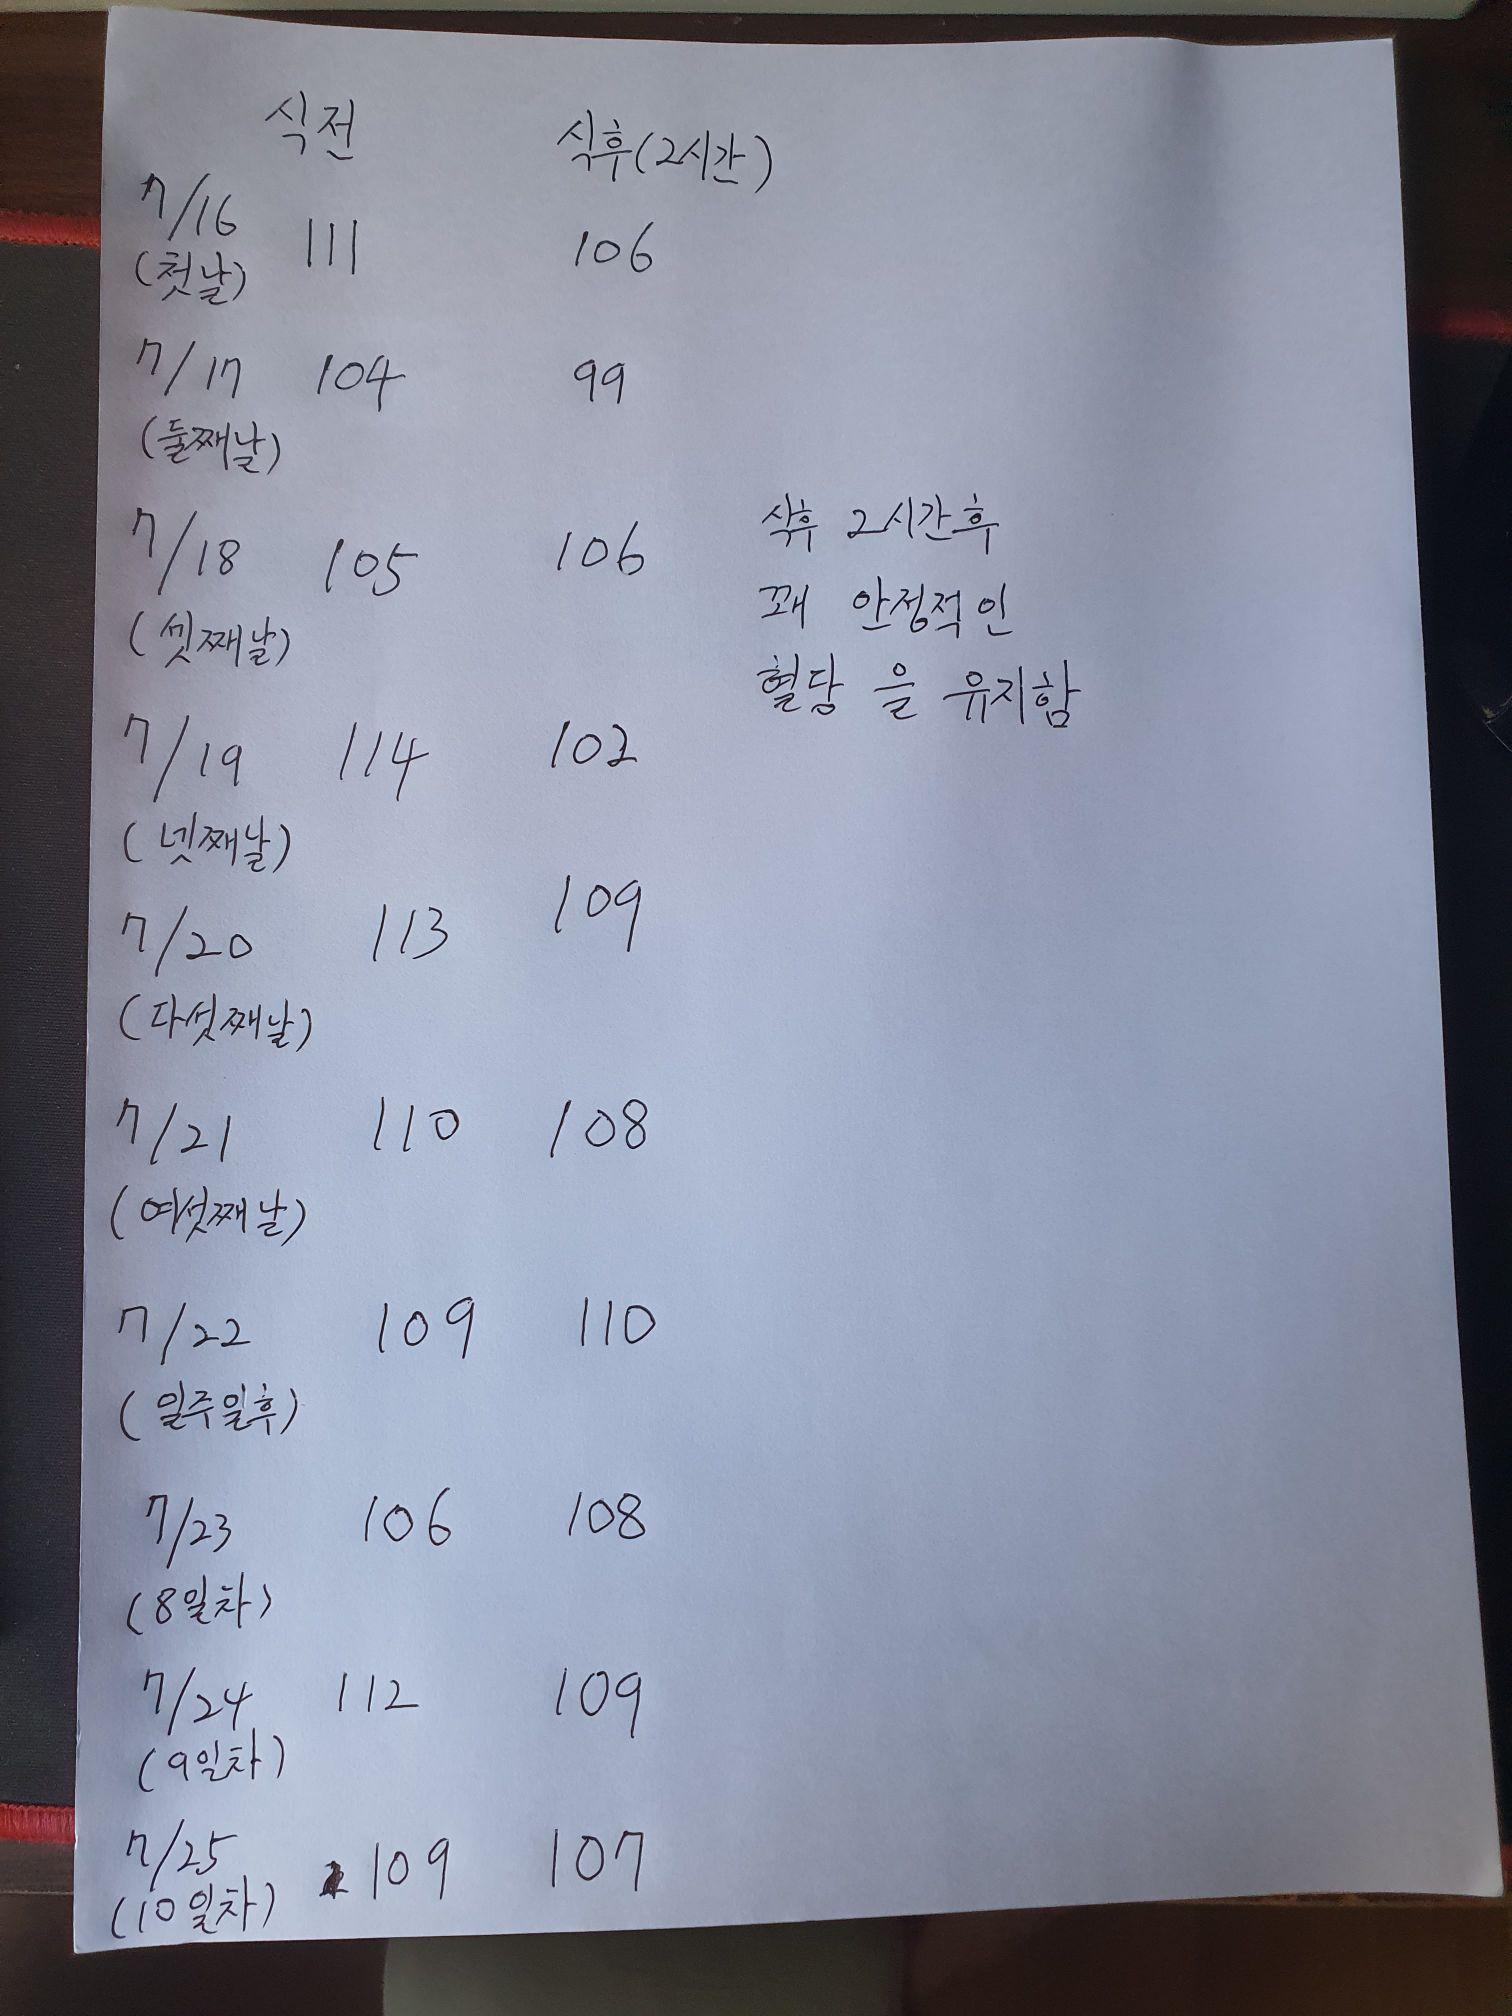 식전 식후(2시간)
7/16 111 106
(첫날)
7/17 104 99
(둘째날)
7/18 105 106
(셋째날)
식후 2시간후
꽤 안정적인
혈당을 유지함
7/19 114 102
(넷째날)
7/20 113 109
(다섯째날)
7/21 110 108
(여섯째날)
7/22 109 110
(일주일후)
7/23 106 108
(8일차)
7/24 112 109
(9일차)
7/25 109 107
(10일차)